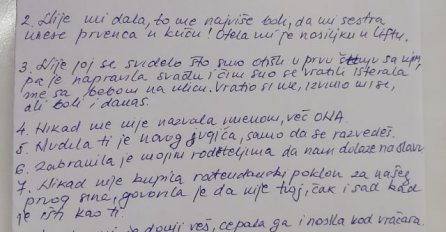 2. Nije mi dala, to me najviše boli, da mi sestra
unese prvenca u kuću! Otela mi je nosiljku u liftu.
3. Nije joj se svidelo što smo otišli u prvu šetnju sa njim,
pa je napravila svađu i čim smo se vratili isterala
me sa bebom na ulicu. Vratio si me, izvinio mi se,
ali boli i danas.
4. Nikad me nije nazvala imenom, već ONA.
5. Nudila ti je novog, samo da se razvedeš.
6. Zabranila je mojim roditeljima da nam dolaze na slavu
7. Nikad nije kupila rođendanski poklon za našeg
prvog sina, govorila je da nije tvoj, čak i sad kad
je isti kao ti.
donji veš, cepala ga i nosila kod vračara.